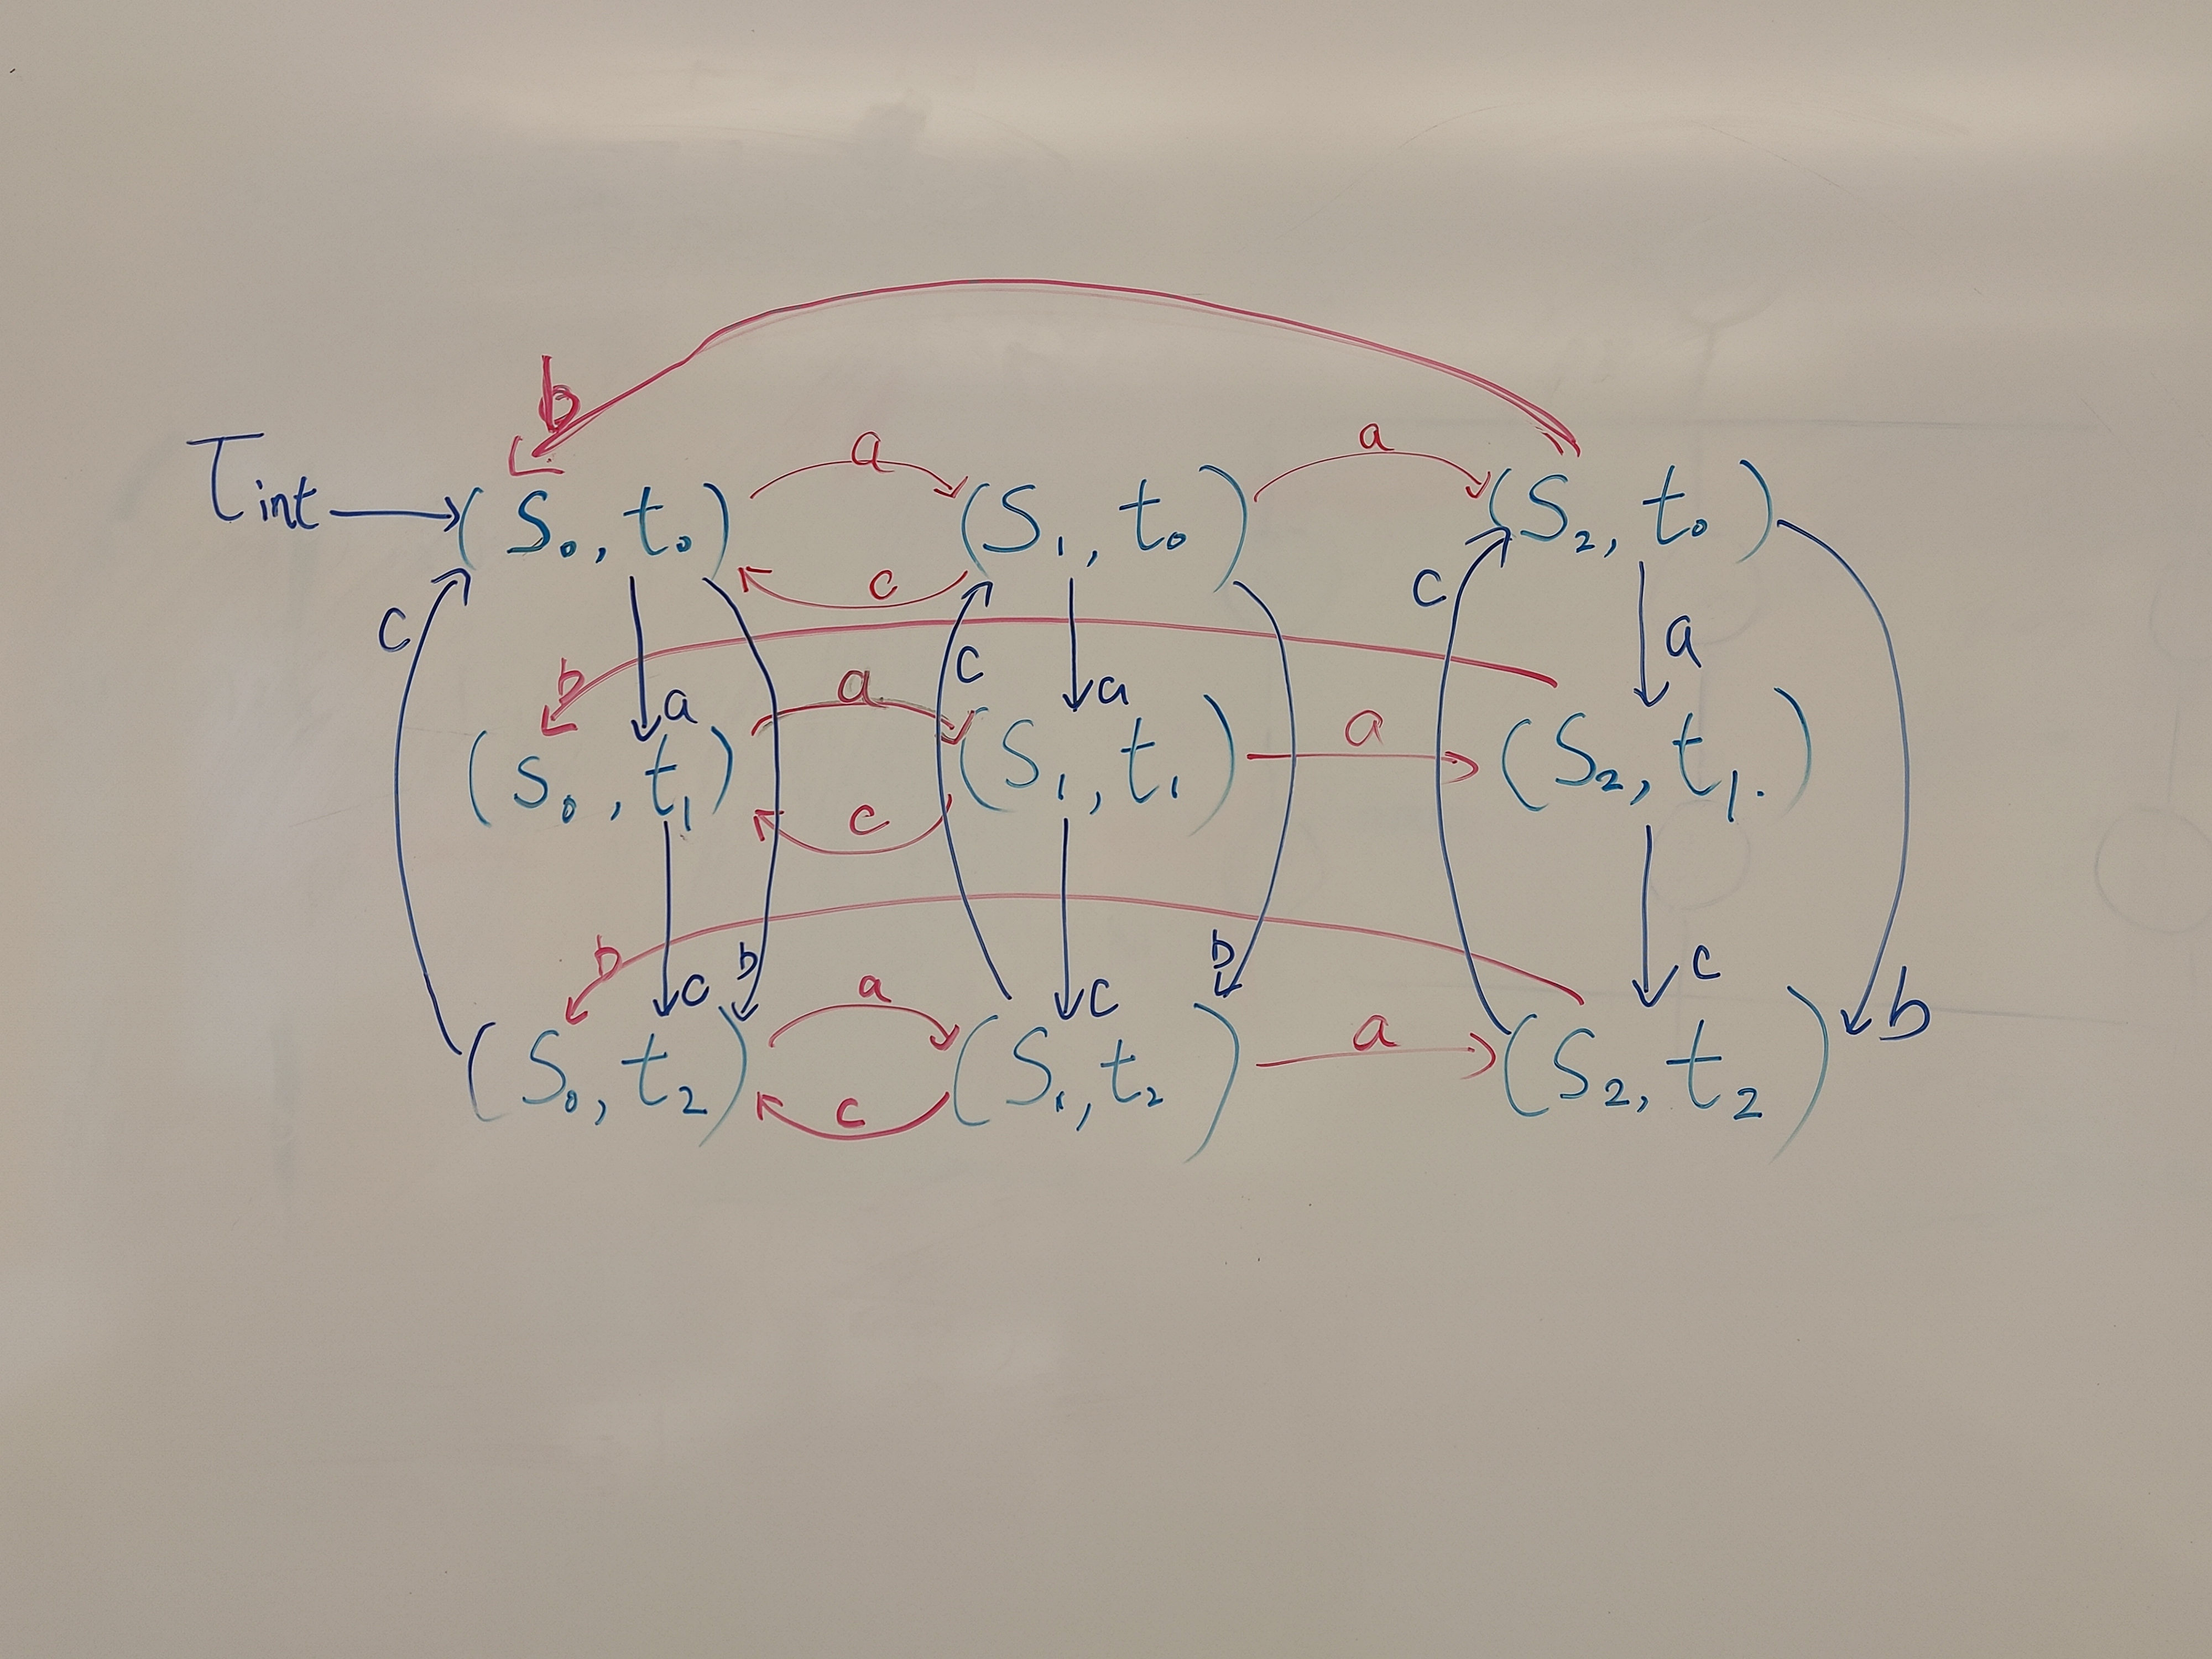 b
a a
T_int (S₀, t₀) (S₁, t₀) (S₂, t₀)
c c
c a
c b c a
a a a
(S₀, t₁) (S₁, t₁) (S₂, t₁.)
c
b b b c
c a c
a b
(S₀, t₂) (S₁, t₂) (S₂, t₂)
c